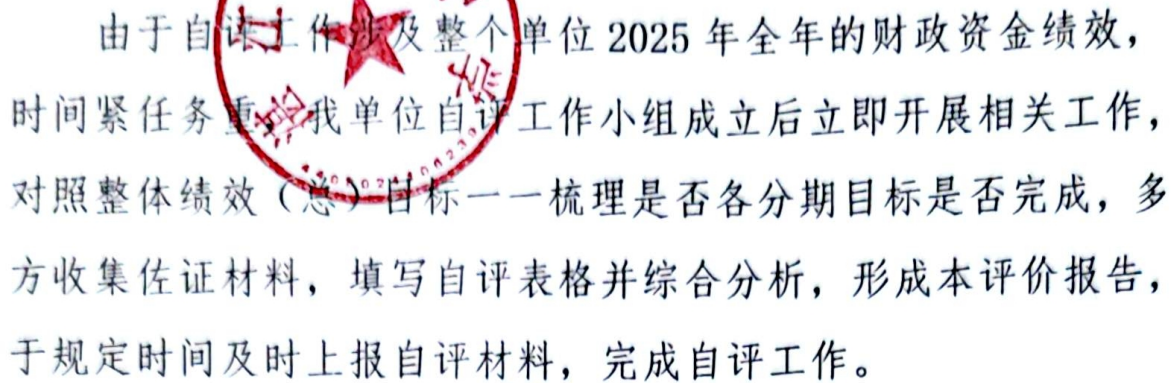 由于自评工作涉及整个单位 2025 年全年的财政资金绩效，
时间紧任务重，我单位自评工作小组成立后立即开展相关工作，
对照整体绩效（总）目标一一梳理是否各分期目标是否完成，多
方收集佐证材料，填写自评表格并综合分析，形成本评价报告，
于规定时间及时上报自评材料，完成自评工作。